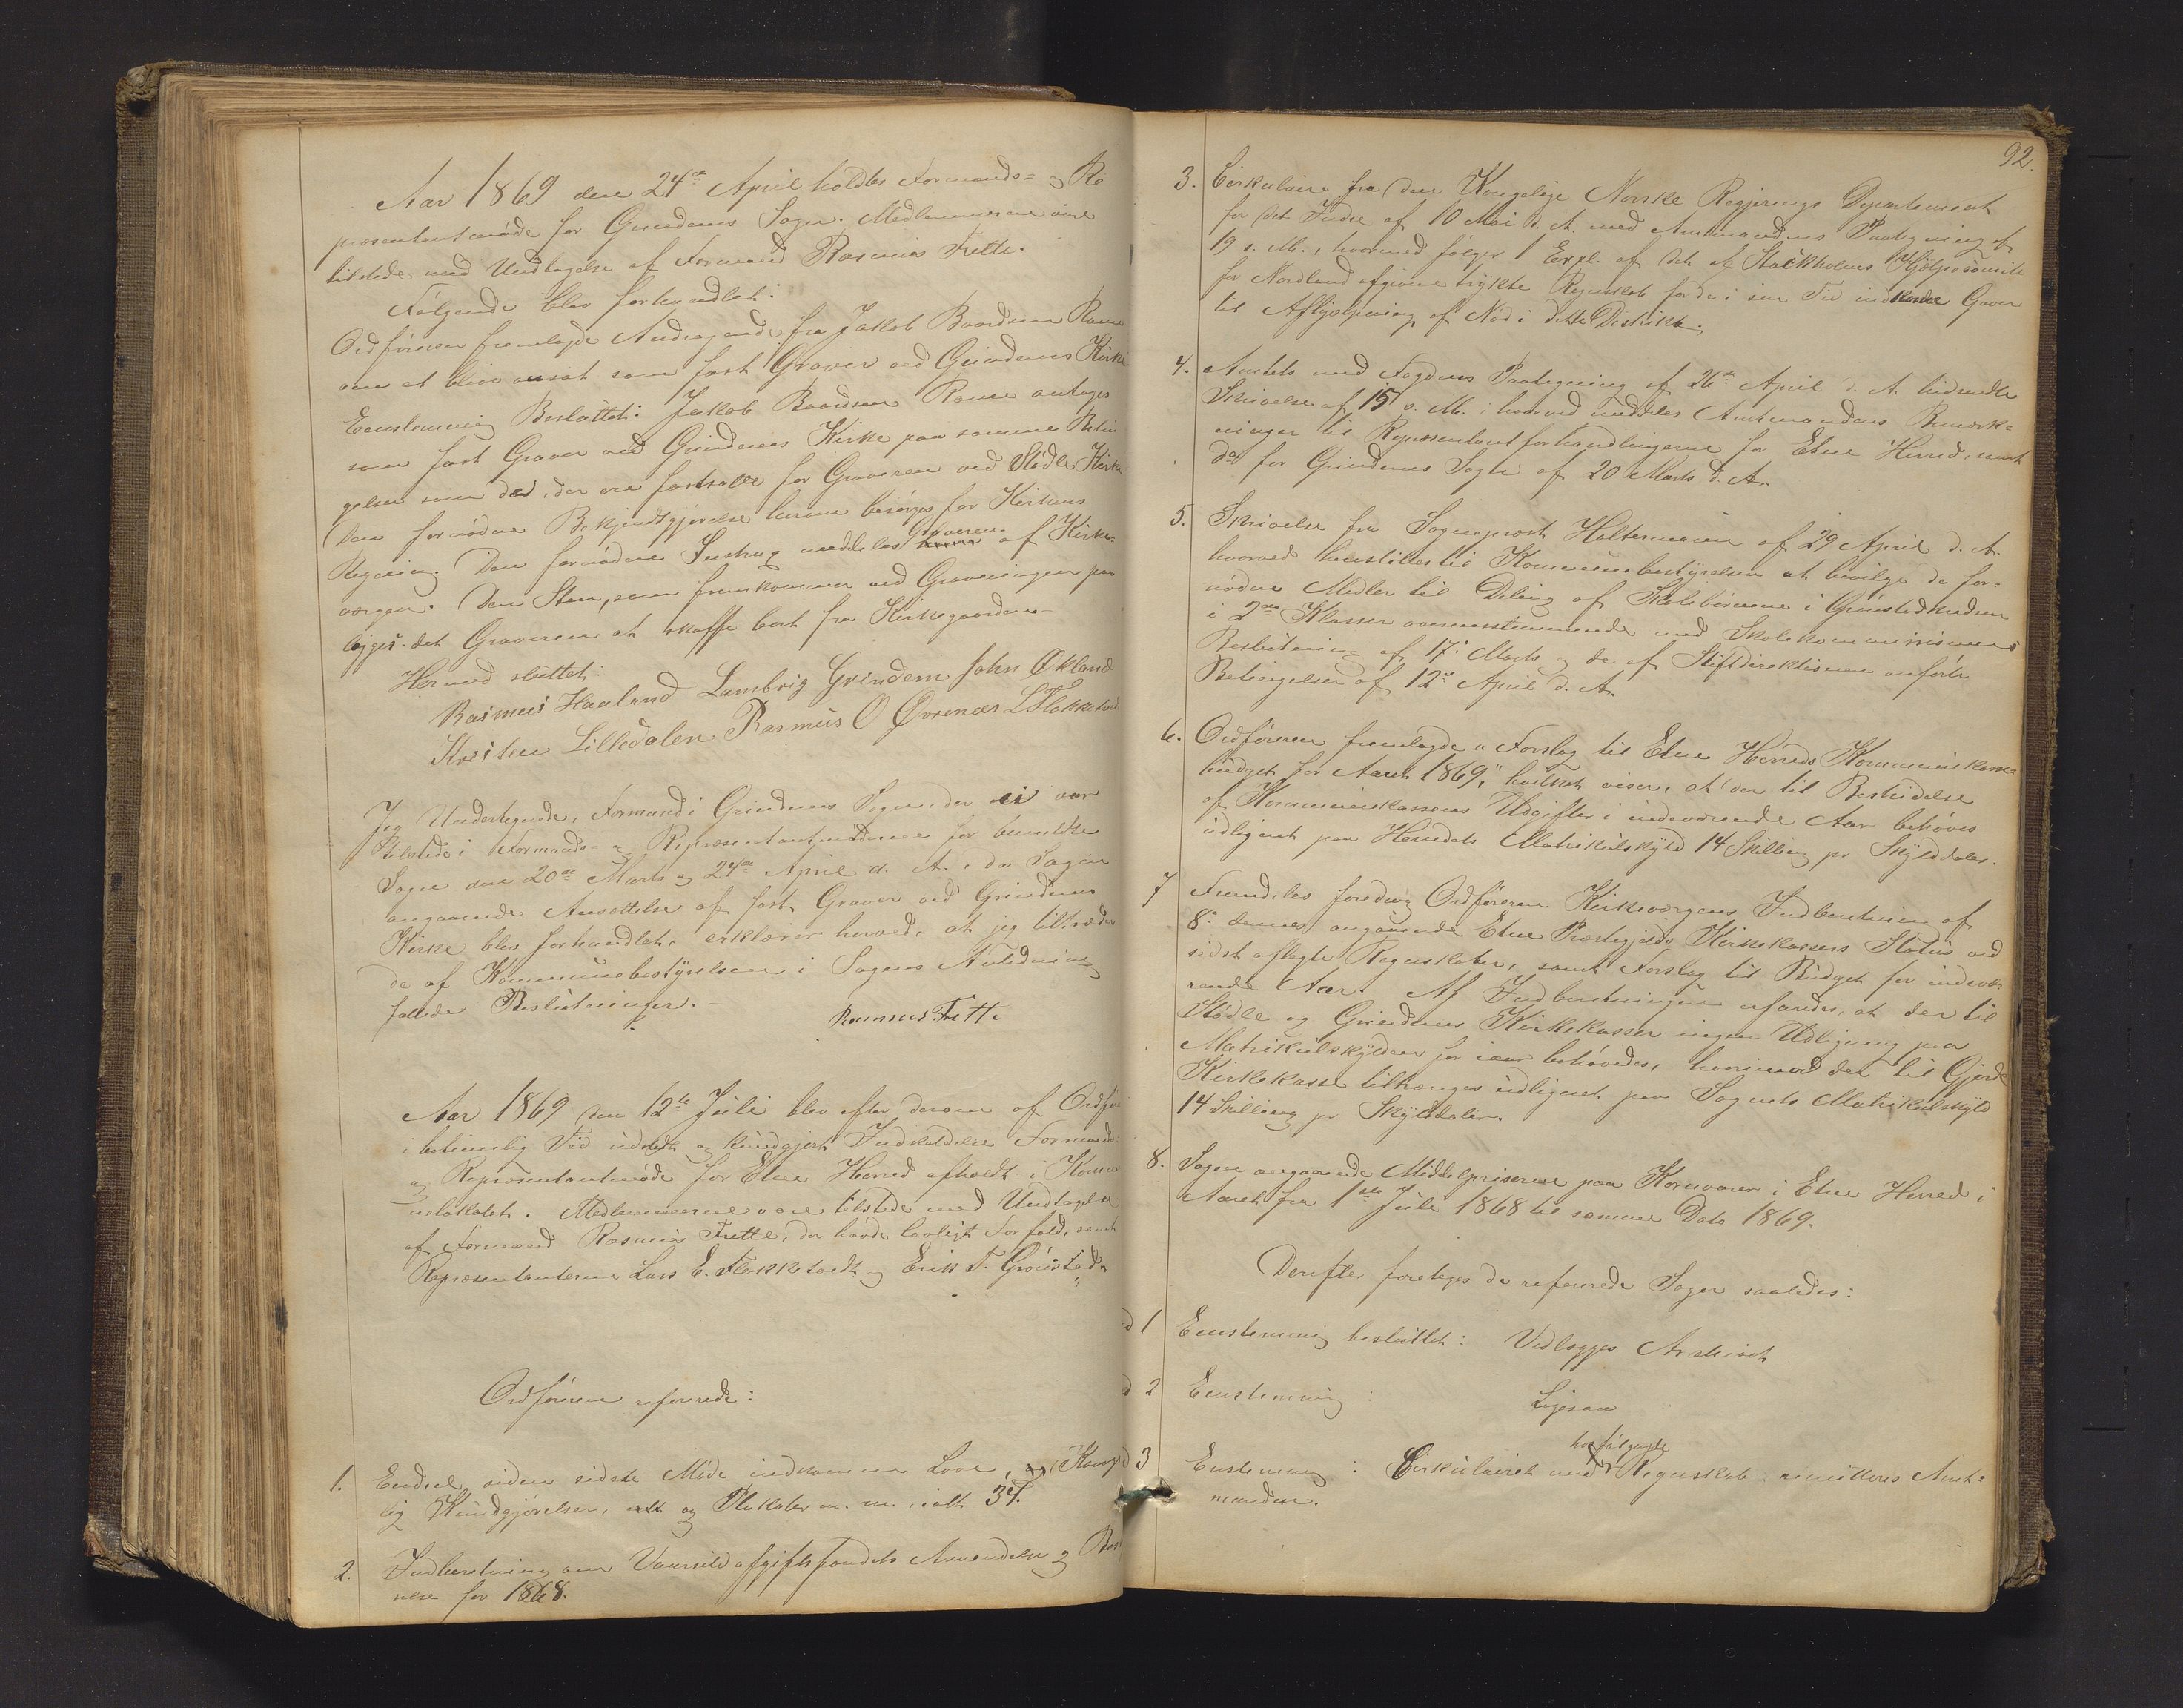 Aar 1869 den 24de April holdtes Formands- og Re
præsentantmøde for Grindems Sogn. Medlemmerne vare
tilstede med Undtagelse af Formand Rasmus Frette.
Følgende blev forhandlet:
Ordføreren fremlagde Andragende fra Jakob Baardsen Rame
om at blive ansat som fast Graver ved Grindems Kirke
Eenstemmig Besluttet: Jakob Baardsen Rame antages
som fast Graver ved Grindems Kirke paa samme Betin
gelser som der ere fastsatte for Graveren ved Stødle Kirke
Den fornødne Bekjendtgjørelse herom besørges for Kirkens
Regning. Den fornødne Instrux meddeles Graveren af Kirke-
værgen. Den Sten, som fremkommer ved Gravningen paa
ligger det Graveren at skaffe bort fra Kirkegaarden.
Hermed sluttet.
Rasmus Haaland Lambrig Grindem John Økland
Kristen Lilledalen Rasmus O Øvrenæs L Flokketvedt
Jeg Undertegnede, Formand i Grindems Sogn, der ei var
tilstede i Formands- og Repræsentantmøderne for bemeldte
Sogn den 20de Marts og 24de April d. A. da Sagen
angaaende Ansættelse af fast Graver ved Grindems
Kirke blev forhandlet, erklærer herved, at jeg tiltræder
de af Kommunebestyrelsen i Sagens Anledning
fattede Beslutninger.
Rasmus Frette
Aar 1869 den 12te Juli blev efter derom af Ordfør
i betimelig Tid udstedt og kundgjort Indkaldelse Formands-
og Repræsentantmøde for Etne Herred afholdt i Kommu
nelokalet. Medlemmerne vare tilstede med Undtagelse
af Formand Rasmus Frette, der havde lovligt Forfald, samt
Repræsentanterne Lars E. Flokketvedt og Erik T. Grønstad.
Ordføreren refererede:
1. Endeel siden sidste Møde indkomne Love, Kongl
ig Kundgjørelser, og Plakater m. m. ialt 34.
2. Indberetning om Vaarsildafgiftsfondets Anvendelse og Best
nelse for 1868.
92.
3. Cirkulaire fra den Kongelige Norske Regjerings Departement
for det Indre af 10 Mai d. A. med Amtmandens Paategning af
19 s. M., hvormed følger 1 Expl. af det af Stockholms Hjelpecomite
for Nordland afgivne trykte Regnskab for de i sin Tid indkomne Gaver
til Afhjælpning af Nød i dette Distrikt.
4. Amtets med Fogdens Paategning af 26de April d. A. tilsendte
Skrivelse af 15 s. M. i hvorved meddeles Amtmandens Bemærk-
ninger til Repræsentantforhandlingerne for Etne Herred, samt
do for Grindems Sogn af 20 Marts d. A.
5. Skrivelse fra Sogneprest Haltermann af 29 April d. A.
hvorved henstilles til Kommunebestyrelsen at bevilge de for-
nødne Midler til Deling af Skolebørnene i Grønstadkredsen
i 2de Klasser overensstemmende med Skolekommissionens
Beslutning af 17de Marts og de af Stiftdirektionen anførte
Betingelser af 12te April d. A.
6. Ordføreren fremlagde "Forslag til Etne Herreds Kommunekasse-
budget for Aaret 1869," hvilket viser, at der til Bestridelse
af Kommunekassens Udgifter i indeværende Aar behøves
udlignet paa Herredets Matrikulskyld 14 Skilling pr Skylddaler.
7 Fremdeles foredrog Ordføreren Kirkeværgens Indberetning af
8de dennes angaaende Etne Præstegjelds Kirkekassers Status ved
sidst aflagte Regnskaber, samt Forslag til Budget for indevæ-
rende Aar. Af Indberetningen erfaredes, at der til
Stødle og Grindems Kirkekasser ingen Udligning paa
Matrikulskylden for iaar behøvedes, hvorimod der til Gjerde
Kirkekasse tiltrænges udlignet paa Sognets Matrikulskyld
14 Skilling pr Skylddaler.
8. Sagen angaaende Middelpriserne paa Kornvarer i Etne Herred i
Aaret fra 1ste Juli 1868 til samme Dato 1869.
Derefter foretoges de refererede Sager saaledes:
ad 1 Eenstemmig besluttet: Vedlægges Arkivet
ad 2 Eenstemmig : Ligesaa
hosfølgende
ad 3 Eenstemmig : Cirkulairet med Regnskab remitteres Amt-
manden.